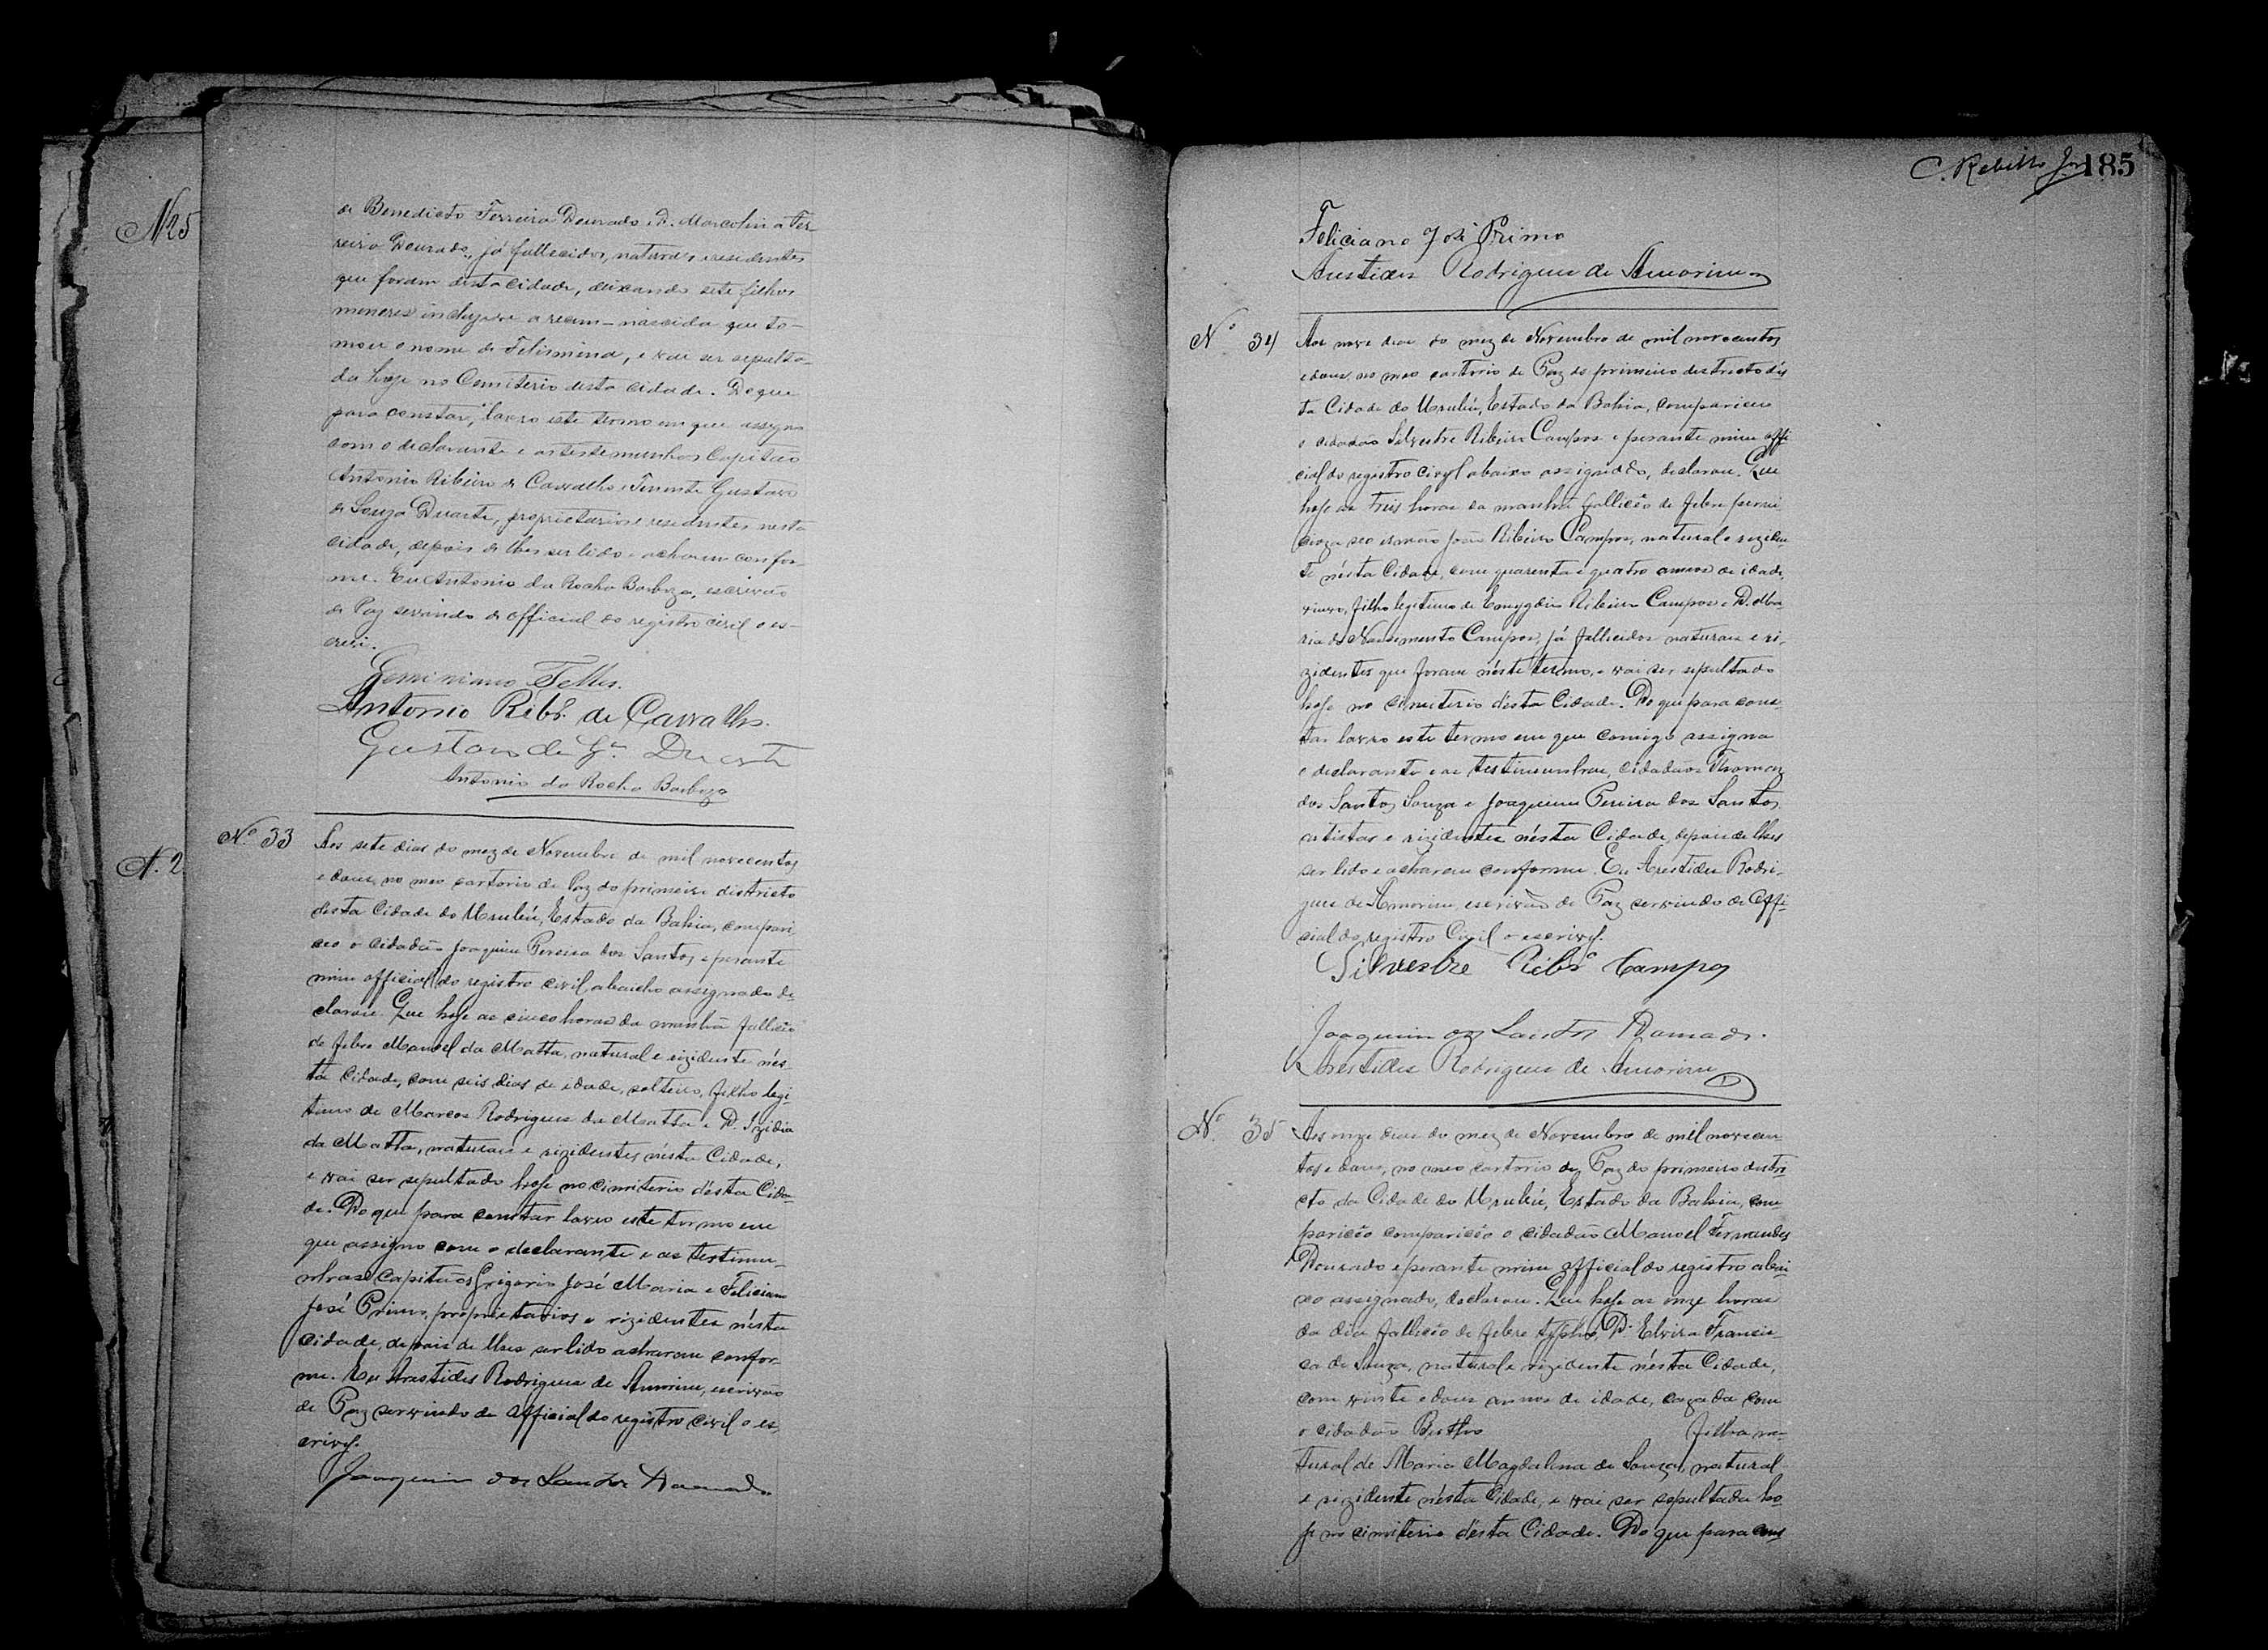 de Benedicto Ferreira Dourado e D. Marcolina Fer
reira Dourado, já fallecidos, naturaes e residentes
que foram desta cidade, deixando sete filhos
menores inclusive a recem-nascida que to-
mou o nome de Felismina, e vai ser sepulta-
da hoje no Cemiterio desta cidade. Do que
para constar, lavro este termo em que assigno
com o declarante e as testemunhas Capitão
Antonio Ribeiro de Carvalho e Tenente Gustavo
de Souza Duarte, proprietarios e residentes nesta
cidade, depois de lhes ser lido e acharem confor-
me. Eu Antonio da Rocha Barboza, escrivão
de Paz servindo de official do registro civil o es-
crevi.
Geminiano Telles.
Antonio Ribº. de Carvalho.
Gustavo de Sª Duarte
Antonio da Rocha Barboza
Nº 33
Aos sete dias do mez de Novembro de mil novecentos
e dous, no meo cartorio de Paz do primeiro districto
desta Cidade do Urubú, Estado da Bahia, compari
ceo o cidadão Joaquim Pereira dos Santos e perante
mim official do registro civil abaicho assignado de
clarou. Que hoje as cinco horas da manhã falliceo
de febre Manoel da Matta, natural e rizidente nés-
ta Cidade, com seis dias de idade, solteiro, filho legi-
timo de Marcos Rodrigues da Matta e D. Izidia
da Matta, naturaes e rizidentes nésta Cidade,
e vai ser sepultado hoje no cimiterio désta Cida-
de. Do que para constar lavro este termo em
que assigno com o declarante e as testimu-
nhas Capitãos Grigorio José Maria e Feliciano
José Primo, proprietarios e rizidentes nésta
Cidade, depois de lhes ser lido acharem confor-
me. Eu Arestides Rodrigues de Amorim, escrivão
de Paz servindo de official do registro civil o es-
crivy.
Joaquim dos Santos Damado
C. Rebello Jor 185
Feliciano José Primo
Arestides Rodrigues de Amorim
Nº 34
Aos nove dias do mez de Novembro de mil novecentos
e dous, no meo cartorio de Paz do primeiro destricto dés
ta Cidade do Urubú, Estado da Bahia, compariceu
o cidadão Silvestre Ribeiro Campos e perante mim offi
cial do registro civyl abaixo assignado, declarou. Que
hoje as tres horas da manhã falliceo de febre perni
cioza seo irmão João Ribeiro Campos, natural e reziden-
te nésta Cidade, com quarenta e quatro annos de idade,
viuvo, filho legitimo de Emygdio Ribeiro Campos e D. Ma
ria do Nascimento Campos, já fallicidos naturaes e ri-
zidentes que foram néste termo, e vai ser sepultado
hoje no cimiterio désta Cidade. Do que para cons-
tar lavro este termo em que comigo assigna
o declarante e as testimunhas, cidadãos Thomaz
dos Santos Souza e Joaquim Pereira dos Santos
artistas e rizidentes nésta Cidade, depois de lhes
ser lido e acharem conforme. Eu Arestides Rodri-
gues de Amorim, escrivão de Paz servindo de Offi-
cial do registro Civil o escrivy.
Silvestre Ribrº Campos
Joaquim dos Santos Damado.
Arestides Rodrigues de Amorim
Nº 35
Aos onze dias do mez de Novembro de mil novecen-
tos e dous, no meo cartorio de Paz do primeiro distri-
cto da Cidade do Urubú, Estado da Bahia, com
pariceo compariceo o cidadão Manoel Fernandes
Dourado e perante mim official do registro abai-
xo assignado, declarou. Que hoje as onze horas
do dia falliceo de febre typho, D. Elvira Francis-
ca de Souza, natural e rizidente nésta Cidade,
com vinte e dous annos de idade, cazada com
o cidadão Bertho filha na-
tural de Maria Magdalena de Souza, natural
e rizidente nésta Cidade, e vai ser sepultada ho
je no cimiterio désta Cidade. Do que para cons
Nº 5
N. 2